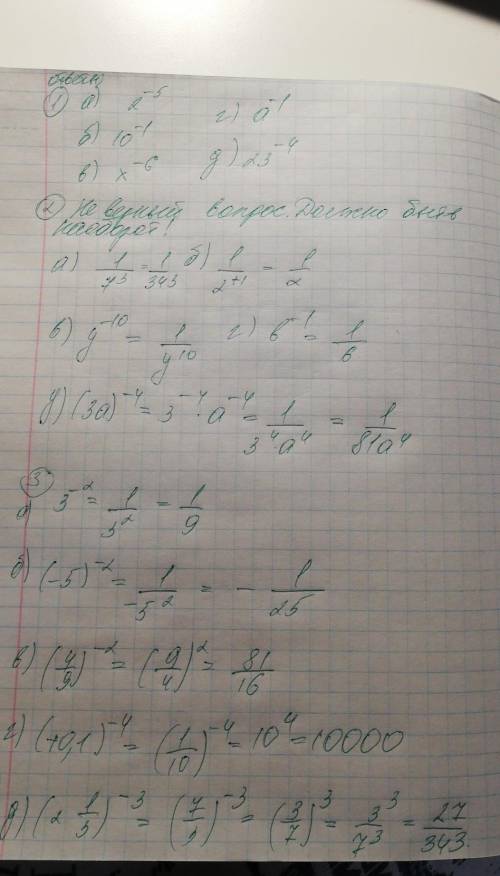 ① а) 2⁻⁵ г) a⁻¹
б) 10⁻¹
в) x⁻⁶ д) 23⁻⁴
② Не верный вопрос. Должно быть
наоборот!
а) 1/7³ = 1/343 б) 1/2⁺¹ = 1/2
в) y⁻¹⁰ = 1/y¹⁰ г) b⁻¹ = 1/b
д) (3a)⁻⁴ = 3⁻⁴ · a⁻⁴ = 1/3⁴a⁴ = 1/81a⁴
③
а) 3⁻² = 1/3² = 1/9
б) (-5)⁻² = 1/-5² = - 1/25
в) (4/9)⁻² = (9/4)² = 81/16
г) (+0,1)⁻⁴ = (1/10)⁻⁴ = 10⁴ = 10000
д) (2 1/3)⁻³ = (7/3)⁻³ = (3/7)³ = 3³/7³ = 27/343.